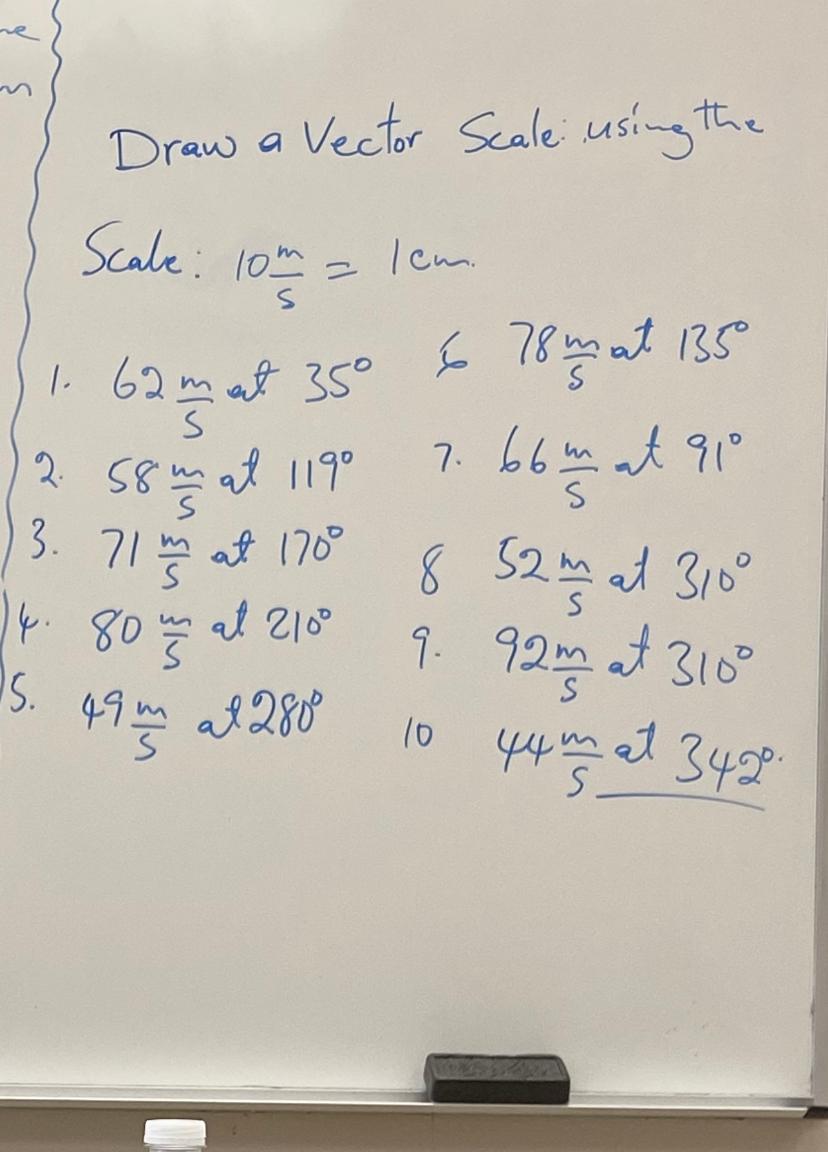 ne
m
Draw a Vector Scale: using the
Scale: 10 m/s = 1cm.
1. 62 m/s at 35°
2. 58 m/s at 119°
3. 71 m/s at 170°
4. 80 m/s at 210°
5. 49 m/s at 280°
6 78 m/s at 135°
7. 66 m/s at 91°
8 52 m/s at 310°
9. 92 m/s at 310°
10 44 m/s at 342°.